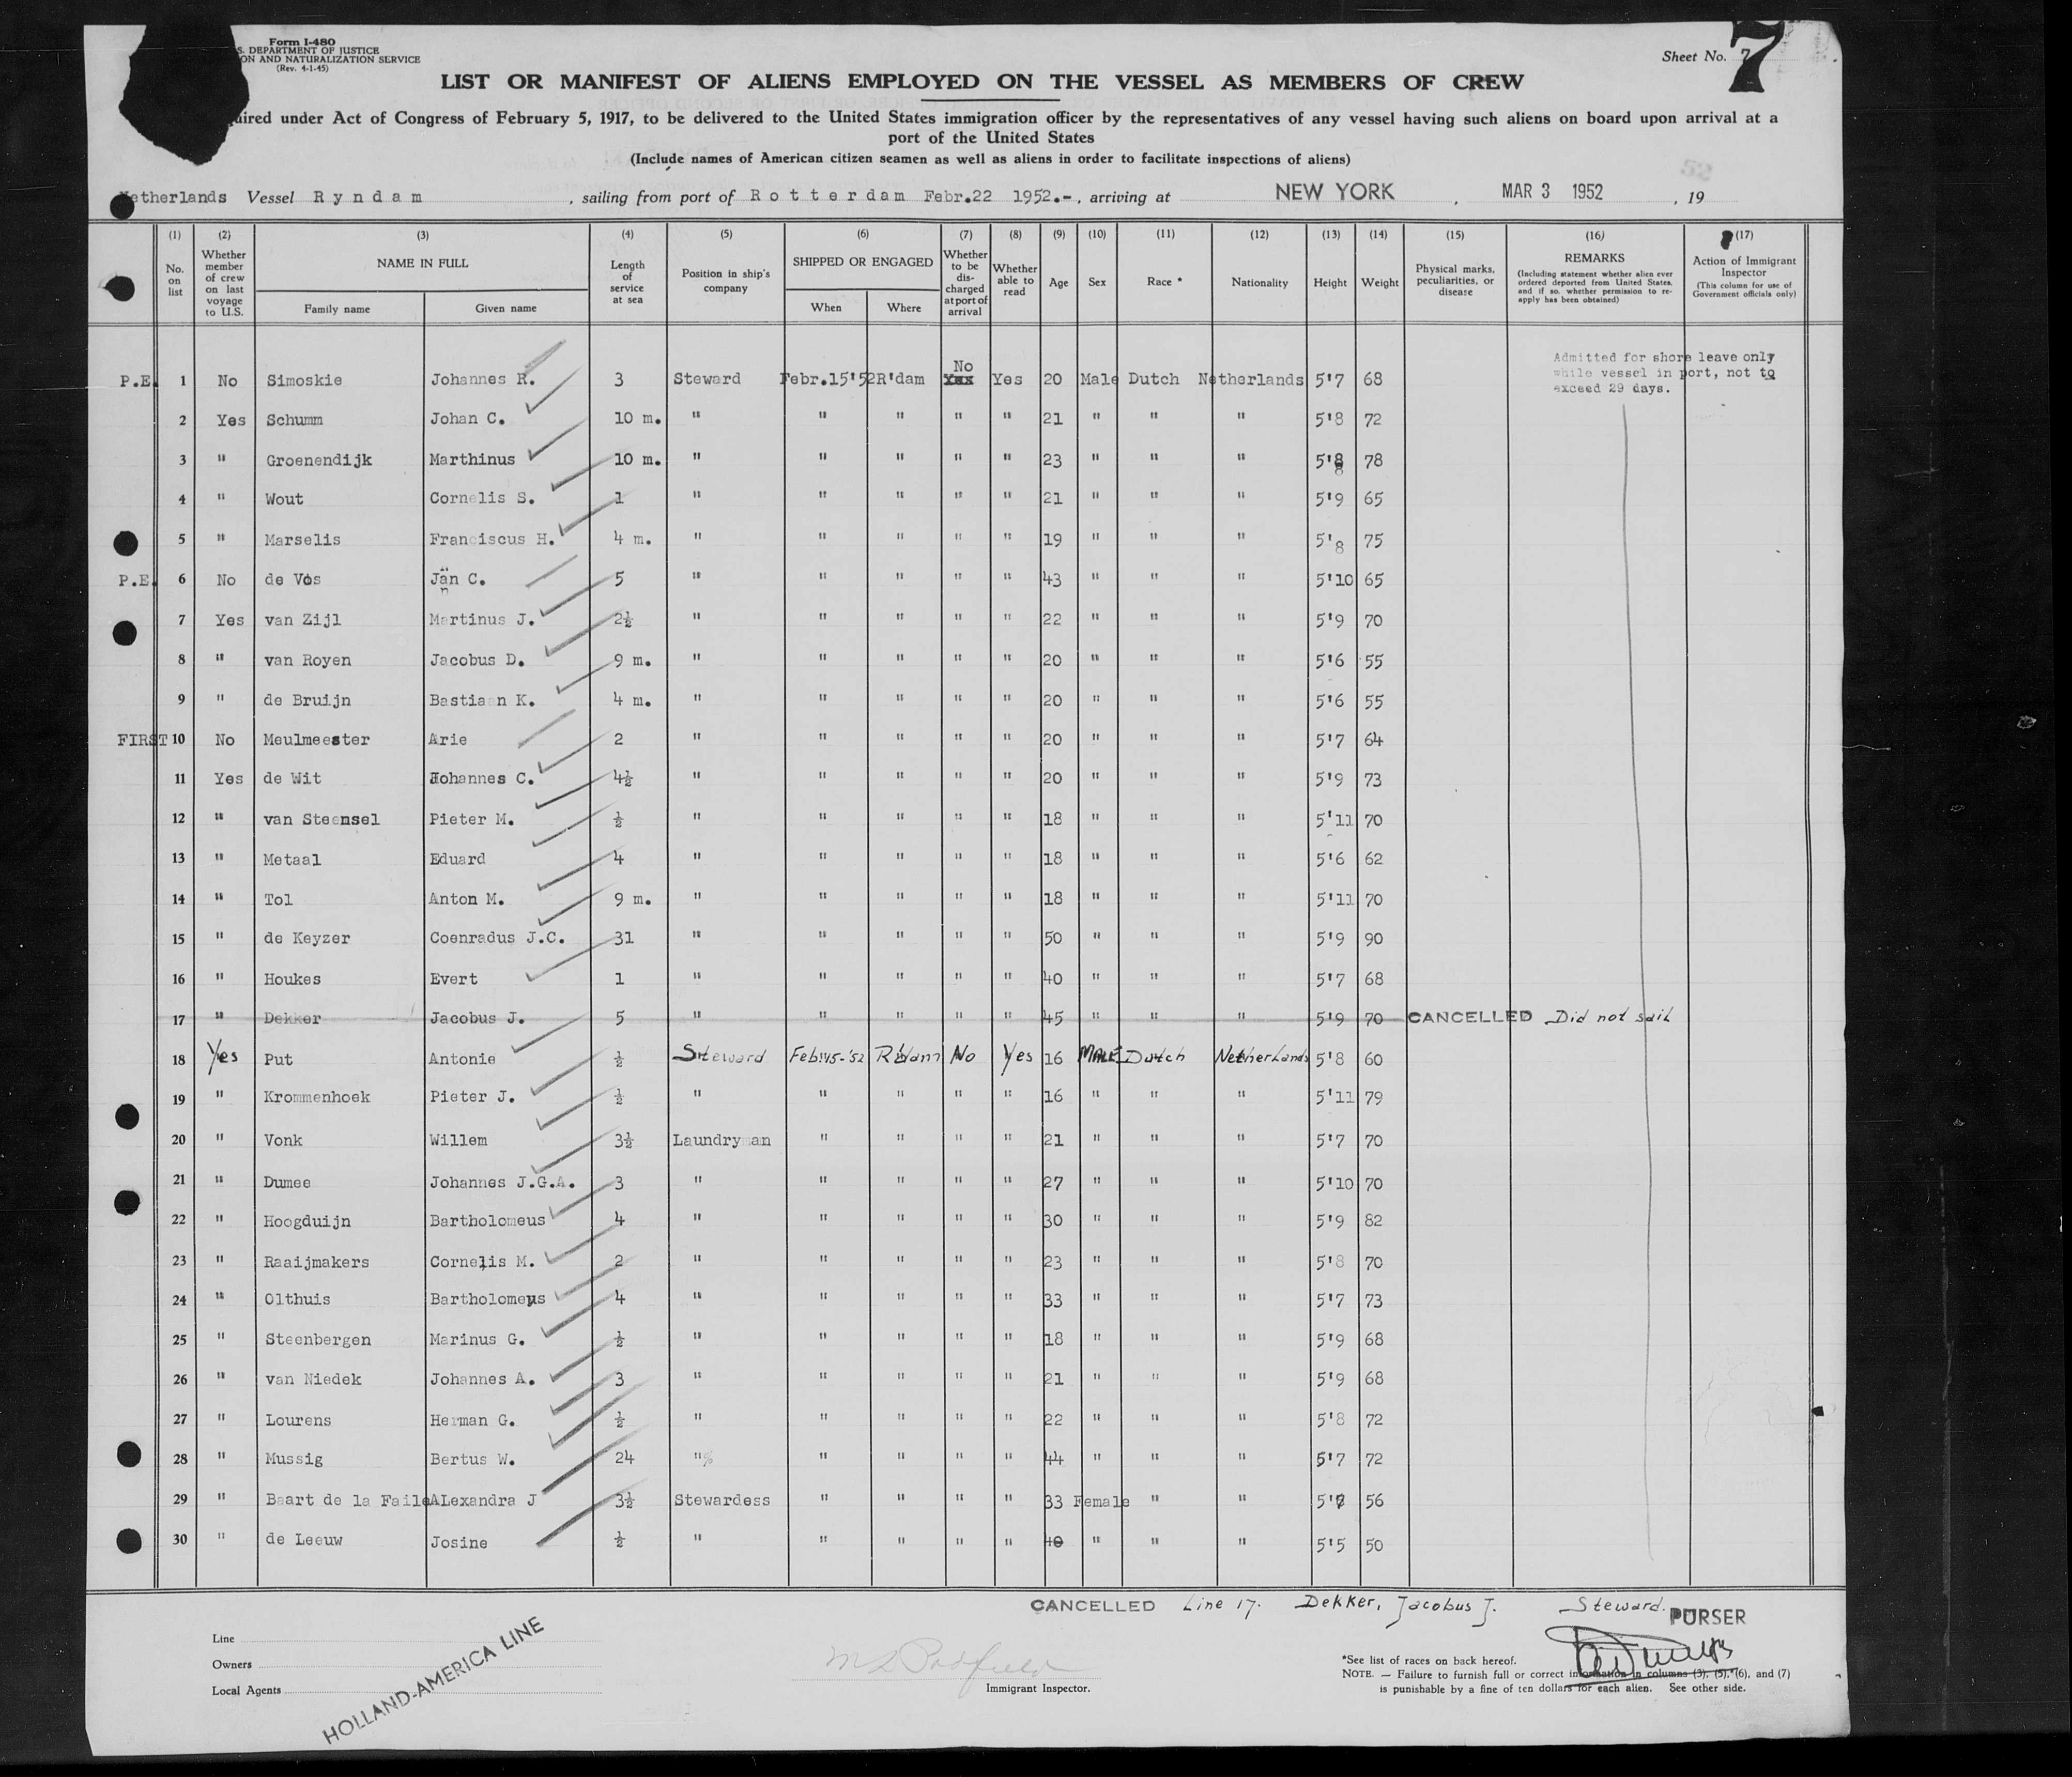 Form I-480
S. DEPARTMENT OF JUSTICE
ON AND NATURALIZATION SERVICE
(Rev. 4-1-45)
Sheet No. 7
7
LIST OR MANIFEST OF ALIENS EMPLOYED ON THE VESSEL AS MEMBERS OF CREW
uired under Act of Congress of February 5, 1917, to be delivered to the United States immigration officer by the representatives of any vessel having such aliens on board upon arrival at a
port of the United States
(Include names of American citizen seamen as well as aliens in order to facilitate inspections of aliens)
52
Netherlands Vessel Ryndam , sailing from port of Rotterdam Febr.22 1952.-, arriving at NEW YORK , MAR 3 1952 , 19
(1) (2) (3) (4) (5) (6) (7) (8) (9) (10) (11) (12) (13) (14) (15) (16) (17)
No. on list
Whether member of crew on last voyage to U.S.
NAME IN FULL
Family name Given name
Length of service at sea
Position in ship's company
SHIPPED OR ENGAGED
When Where
Whether to be discharged at port of arrival
Whether able to read
Age Sex Race * Nationality Height Weight
Physical marks, peculiarities, or disease
REMARKS
(Including statement whether alien ever ordered deported from United States, and if so, whether permission to reapply has been obtained)
Action of Immigrant Inspector
(This column for use of Government officials only)
Admitted for shore leave only
while vessel in port, not to
exceed 29 days.
P.E. 1 No Simoskie Johannes R. 3 Steward Febr.15'52 R'dam No Yes 20 Male Dutch Netherlands 5'7 68
2 Yes Schumm Johan C. 10 m. " " " " " 21 " " " 5'8 72
3 " Groenendijk Marthinus 10 m. " " " " " 23 " " " 5'8 78
4 " Wout Cornelis S. 1 " " " " " 21 " " " 5'9 65
5 " Marselis Franciscus H. 4 m. " " " " " 19 " " " 5'8 75
P.E. 6 No de Vos Jan C. 5 " " " " " 43 " " " 5'10 65
7 Yes van Zijl Martinus J. 2½ " " " " " 22 " " " 5'9 70
8 " van Royen Jacobus D. 9 m. " " " " " 20 " " " 5'6 55
9 " de Bruijn Bastiaan K. 4 m. " " " " " 20 " " " 5'6 55
FIRST 10 No Meulmeester Arie 2 " " " " " 20 " " " 5'7 64
11 Yes de Wit Johannes C. 4½ " " " " " 20 " " " 5'9 73
12 " van Steensel Pieter M. ½ " " " " " 18 " " " 5'11 70
13 " Metaal Eduard 4 " " " " " 18 " " " 5'6 62
14 " Tol Anton M. 9 m. " " " " " 18 " " " 5'11 70
15 " de Keyzer Coenradus J.C. 31 " " " " " 50 " " " 5'9 90
16 " Houkes Evert 1 " " " " " 40 " " " 5'7 68
17 " Dekker Jacobus J. 5 " " " " " 45 " " " 5'9 70 CANCELLED Did not sail
18 Yes Put Antonie ½ Steward Feb:15-'52 R'dam No Yes 16 MALE Dutch Netherlands 5'8 60
19 " Krommenhoek Pieter J. ½ " " " " " 16 " " " 5'11 79
20 " Vonk Willem 3½ Laundryman " " " " 21 " " " 5'7 70
21 " Dumee Johannes J.G.A. 3 " " " " " 27 " " " 5'10 70
22 " Hoogduijn Bartholomeus 4 " " " " " 30 " " " 5'9 82
23 " Raaijmakers Cornelis M. 2 " " " " " 23 " " " 5'8 70
24 " Olthuis Bartholomeus 4 " " " " " 33 " " " 5'7 73
25 " Steenbergen Marinus G. ½ " " " " " 18 " " " 5'9 68
26 " van Niedek Johannes A. 3 " " " " " 21 " " " 5'9 68
27 " Lourens Herman G. ½ " " " " " 22 " " " 5'8 72
28 " Mussig Bertus W. 24 " " " " " 44 " " " 5'7 72
29 " Baart de la Faile ALexandra J 3½ Stewardess " " " " 33 Female " " 56
30 " de Leeuw Josine ½ " " " " " 40 " " " 5'5 50
CANCELLED Line 17. Dekker, Jacobus J. Steward.
PURSER
Line
Owners
Local Agents
HOLLAND-AMERICA LINE
Immigrant Inspector.
*See list of races on back hereof.
NOTE. — Failure to furnish full or correct information in columns (3), (5), (6), and (7)
is punishable by a fine of ten dollars for each alien. See other side.